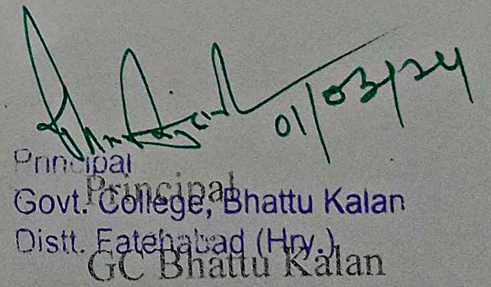 01/03/24
Principal
Principal
Govt. College, Bhattu Kalan
Distt. Fatehabad (Hry.)
GC Bhattu Kalan